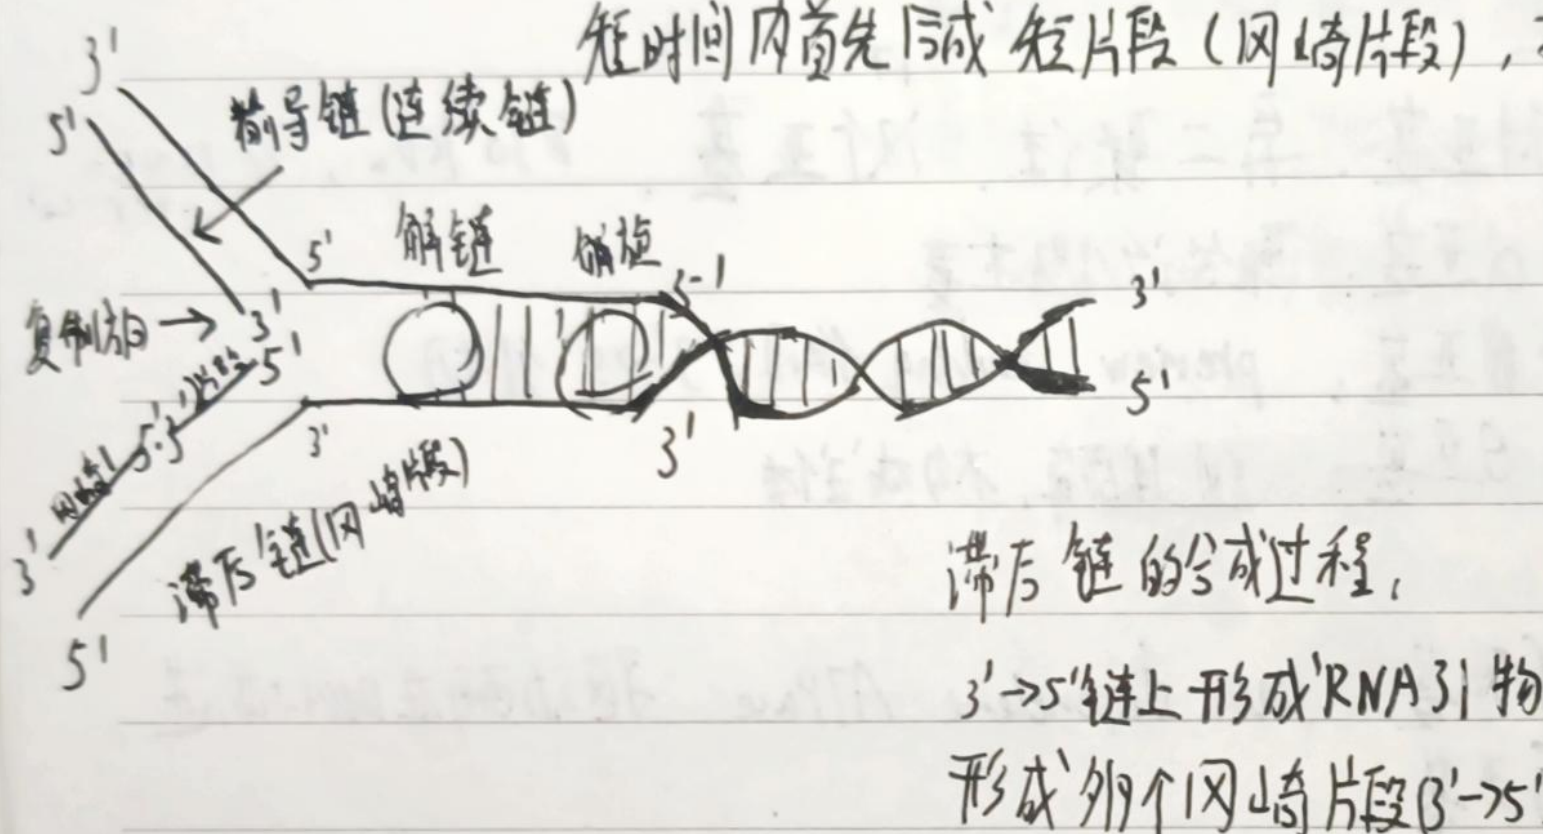 短时间内首先合成短片段(冈崎片段),
3'
5'
前导链(连续链)
5'
解链
解旋
3'
5'
复制方向→
3'
5'
3'
3'
5'
3'
滞后链(冈崎片段)
3'
5'
滞后链的合成过程,
3'→5'链上形成RNA引物
形成多个冈崎片段(3'→5'